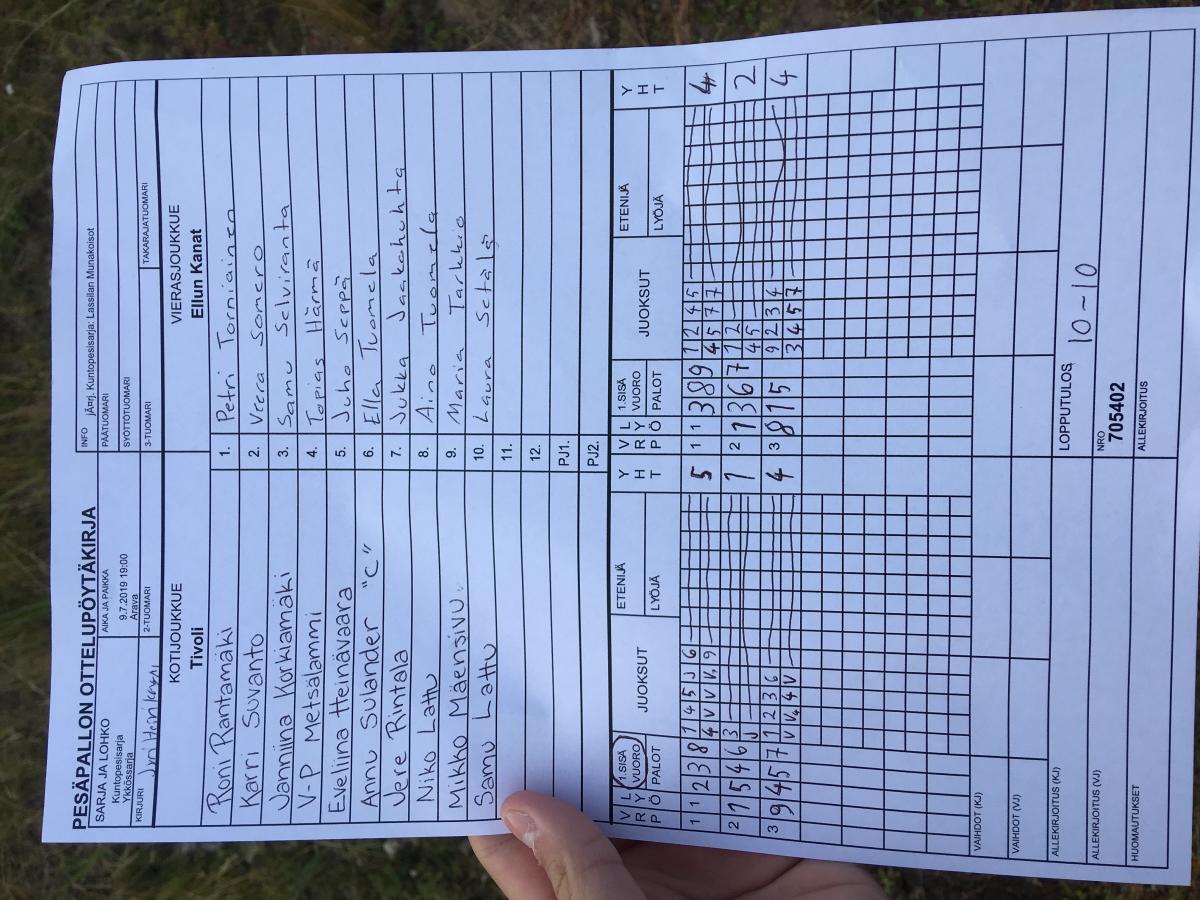 PESÄPALLON OTTELUPÖYTÄKIRJA
SARJA JA LOHKO
Kuntopesisarja
Ykkössarja
AIKA JA PAIKKA
9.7.2019 19:00
Arava
INFO jÃ¤rj. Kuntopesisarja: Lassilan Munakoisot
PÄÄTUOMARI
SYÖTTÖTUOMARI
KIRJURI
2-TUOMARI
3-TUOMARI
TAKARAJATUOMARI
KOTIJOUKKUE
Tivoli
VIERASJOUKKUE
Ellun Kanat
Roni Rantamäki 1. Petri Torniainen
Karri Suvanto 2. Veera Somero
Janniina Korkiamäki 3. Samu Selviranta
V-P Metsälammi 4. Topias Härmä
Eveliina Heinävaara 5. Juho Seppä
Annu Sulander "C" 6. Ella Tuomela
Jere Rintala 7. Jukka Jaakohuhta
Niko Lattu 8. Aino Tuomela
Mikko Mäensivu 9. Maria Tarkkio
Samu Lattu 10. Laura Setälä
11.
12.
PJ1.
PJ2.
V R L Y P Ö 1.SISÄ VUORO PALOT JUOKSUT ETENIJÄ LYÖJÄ Y H T V R L Y P Ö 1.SISÄ VUORO PALOT JUOKSUT ETENIJÄ LYÖJÄ Y H T
1 1 2 3 8 1 4 5 J 6 5 1 1 3 8 9 1 2 4 5 4
4 V V V 9 4 5 7 7
2 7 5 4 6 3 1 2 1 3 6 7 1 2 2
J 4 5
3 9 4 5 7 1 2 3 6 4 3 8 1 5 9 2 3 4 4
V V 4 V 3 4 5 7
VAIHDOT (KJ)
VAIHDOT (VJ)
ALLEKIRJOITUS (KJ)
LOPPUTULOS 10-10
ALLEKIRJOITUS (VJ)
NRO
705402
HUOMAUTUKSET
ALLEKIRJOITUS